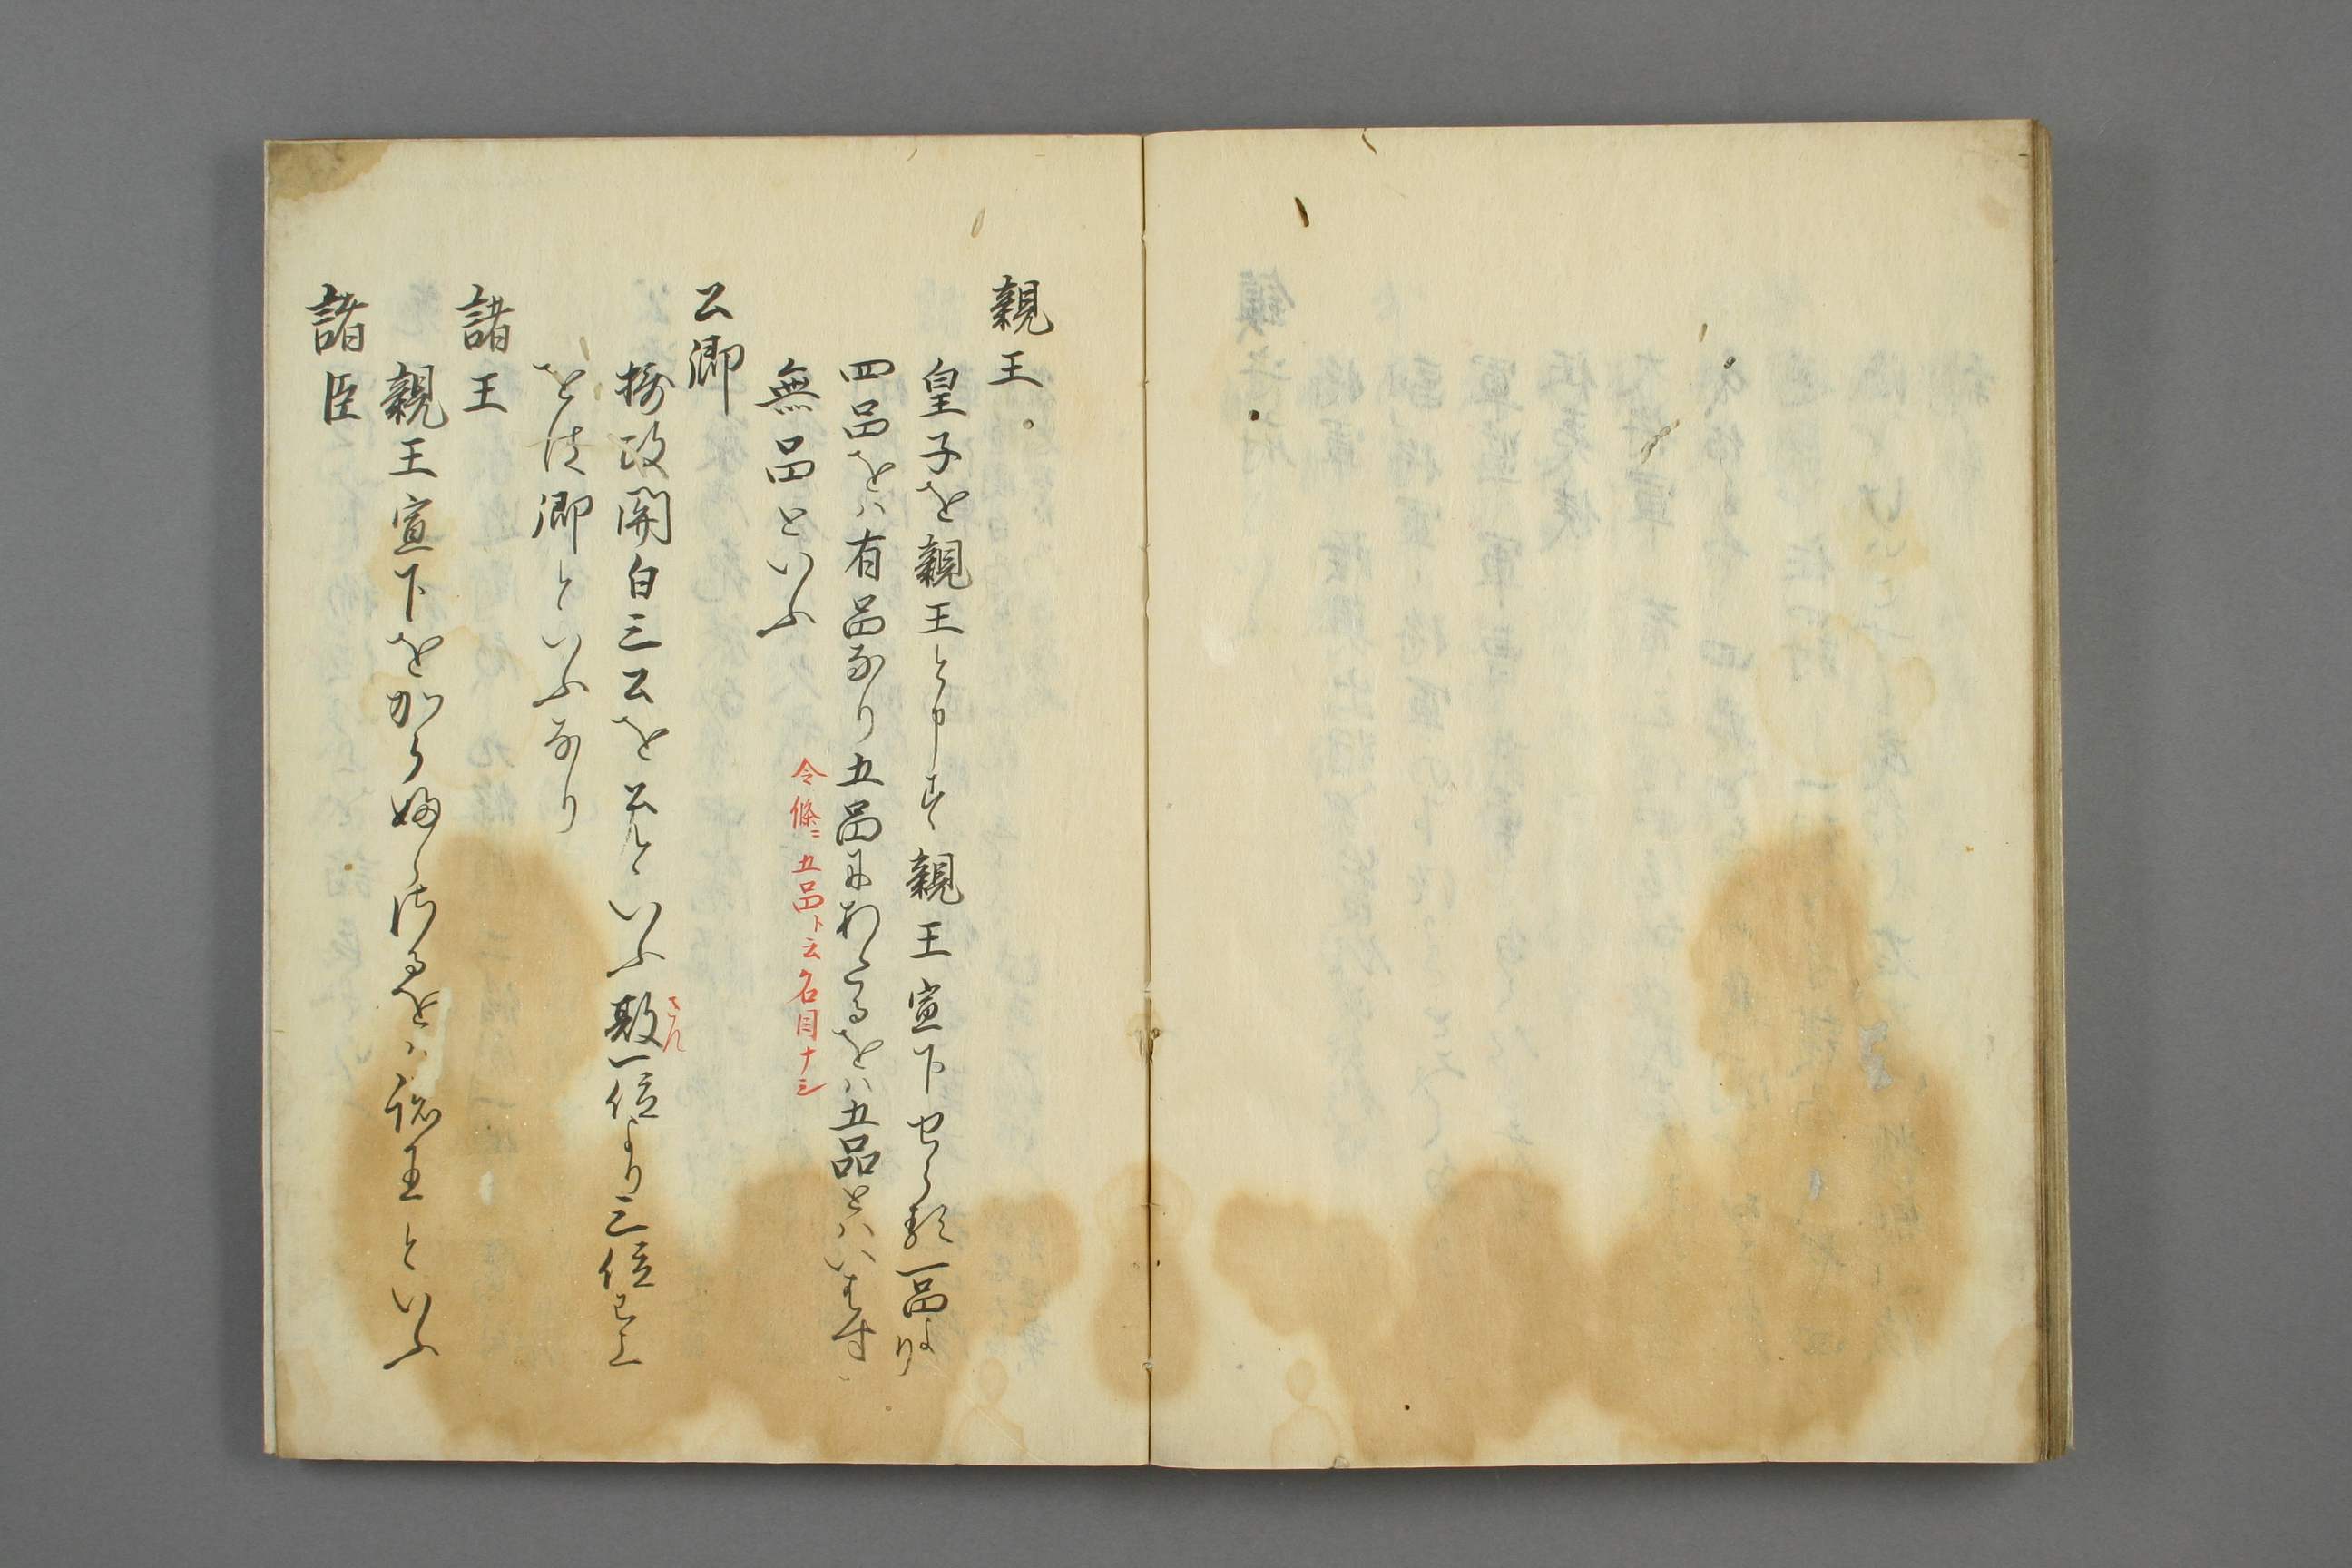 親王
皇子を親王と申す親王宣下せられ一品より
四品をハ有品なり五品にあたるをハ五品とハいはす
令條ニ五品ト云名目ナシ
無品といふ
公卿
摂政関白三公を公といふ散一位より三位已上
さん
を卿といふなり
諸王
親王宣下をかうふらさるをハ諸王といふ
諸臣